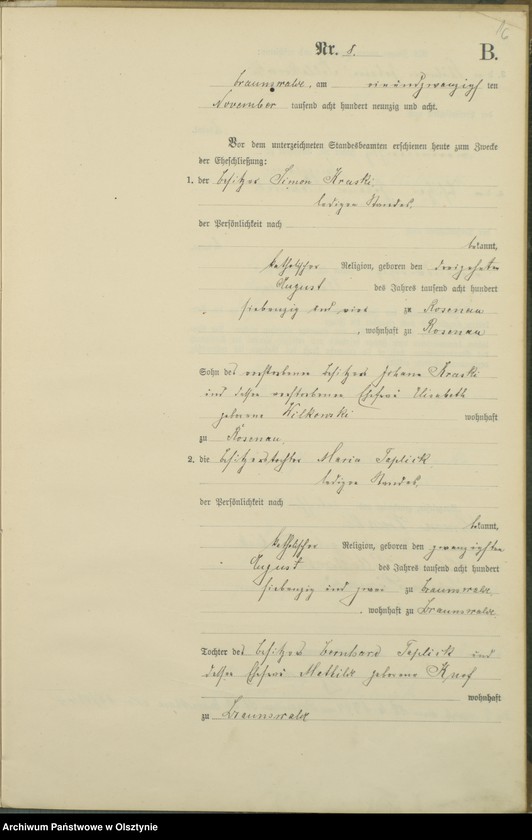 16
Nr. 8.
B.
Braunswalde, am einundzwanzigsten
November tausend acht hundert neunzig und acht.
Vor dem unterzeichneten Standesbeamten erschienen heute zum Zwecke
der Eheschließung:
1. der Besitzer Simon Kraski,
ledigen Standes,
der Persönlichkeit nach
bekannt,
katholischer Religion, geboren den dreizehnten
August des Jahres tausend acht hundert
siebenzig und vier zu Rosenau
, wohnhaft zu Rosenau
Sohn des verstorbenen Besitzers Johann Kraski
und dessen verstorbenen Ehefrau Elisabeth
geborene Wilkowski wohnhaft
zu Rosenau
2. die Besitzerstochter Maria Teplick
ledigen Standes,
der Persönlichkeit nach
bekannt,
katholischer Religion, geboren den zwanzigsten
August des Jahres tausend acht hundert
siebenzig und zwei zu Braunswalde,
, wohnhaft zu Braunswalde,
Tochter des Besitzers Bernhard Teplick und
dessen Ehefrau Mathilde geborene Knof
wohnhaft
zu Braunswalde
Archiwum Państwowe w Olsztynie